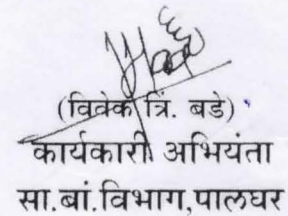 (विवेक त्रिं. बडे)
कार्यकारी अभियंता
सा.बां.विभाग,पालघर